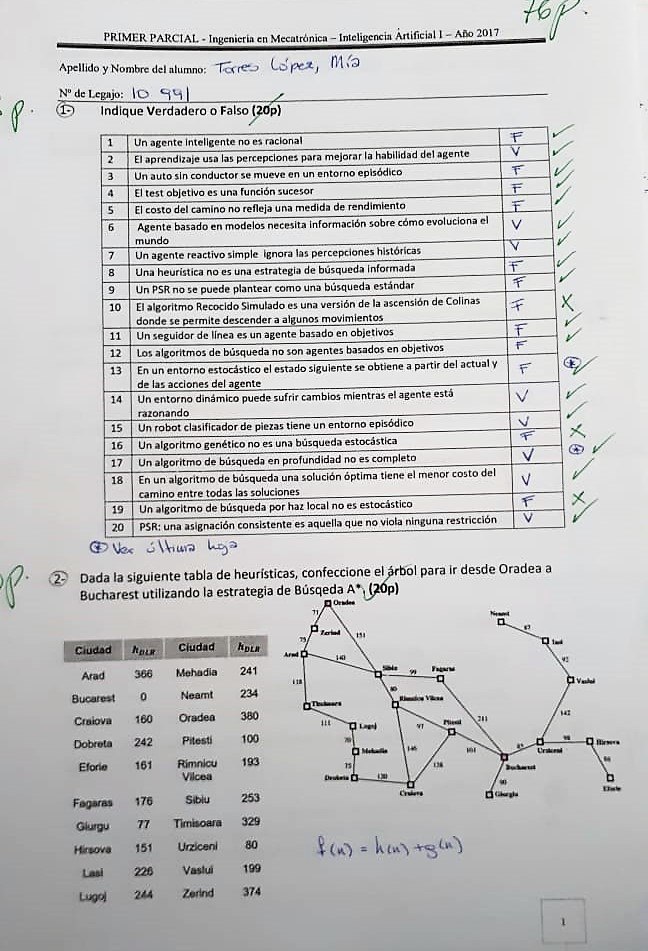 76p.
PRIMER PARCIAL - Ingeniería en Mecatrónica – Inteligencia Artificial I – Año 2017
Apellido y Nombre del alumno: Torres López, Mía
Nº de Legajo: 10 991
p.
1- Indique Verdadero o Falso (20p)
1 Un agente inteligente no es racional F
2 El aprendizaje usa las percepciones para mejorar la habilidad del agente V
3 Un auto sin conductor se mueve en un entorno episódico F
4 El test objetivo es una función sucesor F
5 El costo del camino no refleja una medida de rendimiento F
6 Agente basado en modelos necesita información sobre cómo evoluciona el V
mundo
7 Un agente reactivo simple ignora las percepciones históricas V
8 Una heurística no es una estrategia de búsqueda informada F
9 Un PSR no se puede plantear como una búsqueda estándar F
10 El algoritmo Recocido Simulado es una versión de la ascensión de Colinas F
donde se permite descender a algunos movimientos
11 Un seguidor de línea es un agente basado en objetivos F
12 Los algoritmos de búsqueda no son agentes basados en objetivos F
13 En un entorno estocástico el estado siguiente se obtiene a partir del actual y F
de las acciones del agente
14 Un entorno dinámico puede sufrir cambios mientras el agente está V
razonando
15 Un robot clasificador de piezas tiene un entorno episódico V
16 Un algoritmo genético no es una búsqueda estocástica F
17 Un algoritmo de búsqueda en profundidad no es completo V
18 En un algoritmo de búsqueda una solución óptima tiene el menor costo del V
camino entre todas las soluciones
19 Un algoritmo de búsqueda por haz local no es estocástico F
20 PSR: una asignación consistente es aquella que no viola ninguna restricción V
* Ver última hoja
p.
2- Dada la siguiente tabla de heurísticas, confeccione el árbol para ir desde Oradea a
Bucharest utilizando la estrategia de Búsqeda A*. (20p)
Oradea
71
Neamt
87
Zerind
151
Iasi
75
Arad
140
92
Sibiu
99
Fagaras
118
80
Vaslui
Timisoara
Rimnicu Vilcea
111
Lugoj
97
Pitesti
211
142
70
Mehadia
146
101
85
98
Hirsova
Urziceni
75
138
Bucharest
86
Drobeta
120
90
Craiova
Giurgiu
Eforie
Ciudad hDLR Ciudad hDLR
Arad 366 Mehadia 241
Bucarest 0 Neamt 234
Craiova 160 Oradea 380
Dobreta 242 Pitesti 100
Eforie 161 Rimnicu 193
Vilcea
Fagaras 176 Sibiu 253
Giurgu 77 Timisoara 329
Hirsova 151 Urziceni 80
Lasi 226 Vaslui 199
Lugoj 244 Zerind 374
f(n) = h(n) + g(n)
1